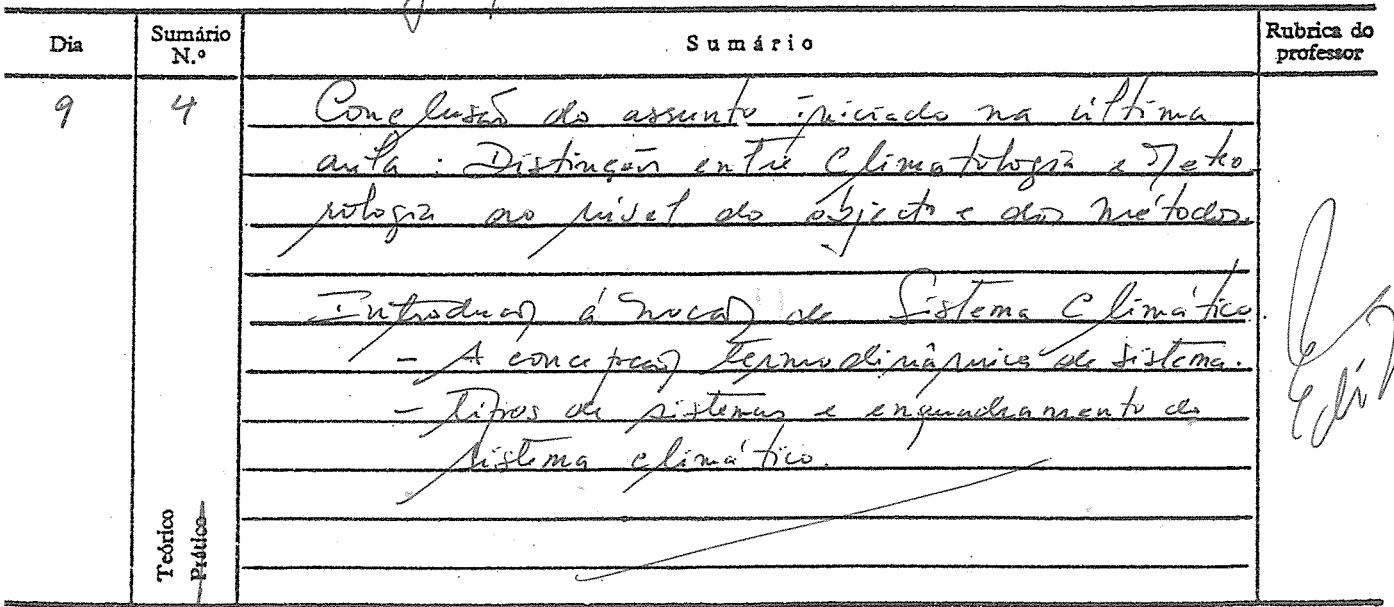 Dia
Sumário
N.º
Sumário
Rubrica do
professor
9
4
Conclusão do assunto iniciado na última
aula : Distinção entre Climatologia e Meteo
rologia ao nível do objecto e dos métodos.
Introdução á noção de Sistema Climático.
- A concepção termodinâmica de sistema.
- Tipos de sistemas e enquadramento do
sistema climático.
Teórico
Prático